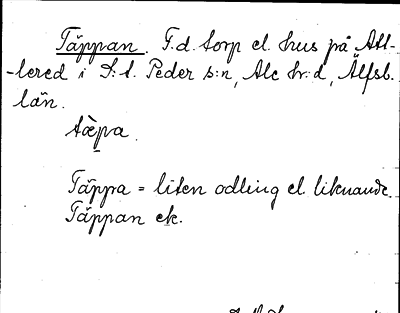 Täppan. F.d. torp el. hus på All-
-lered i S:t. Peder s:n, Ale hr:d, Älfsb.
län.
tæpa
Täppa = liten odling el. liknande.
Täppan ek.